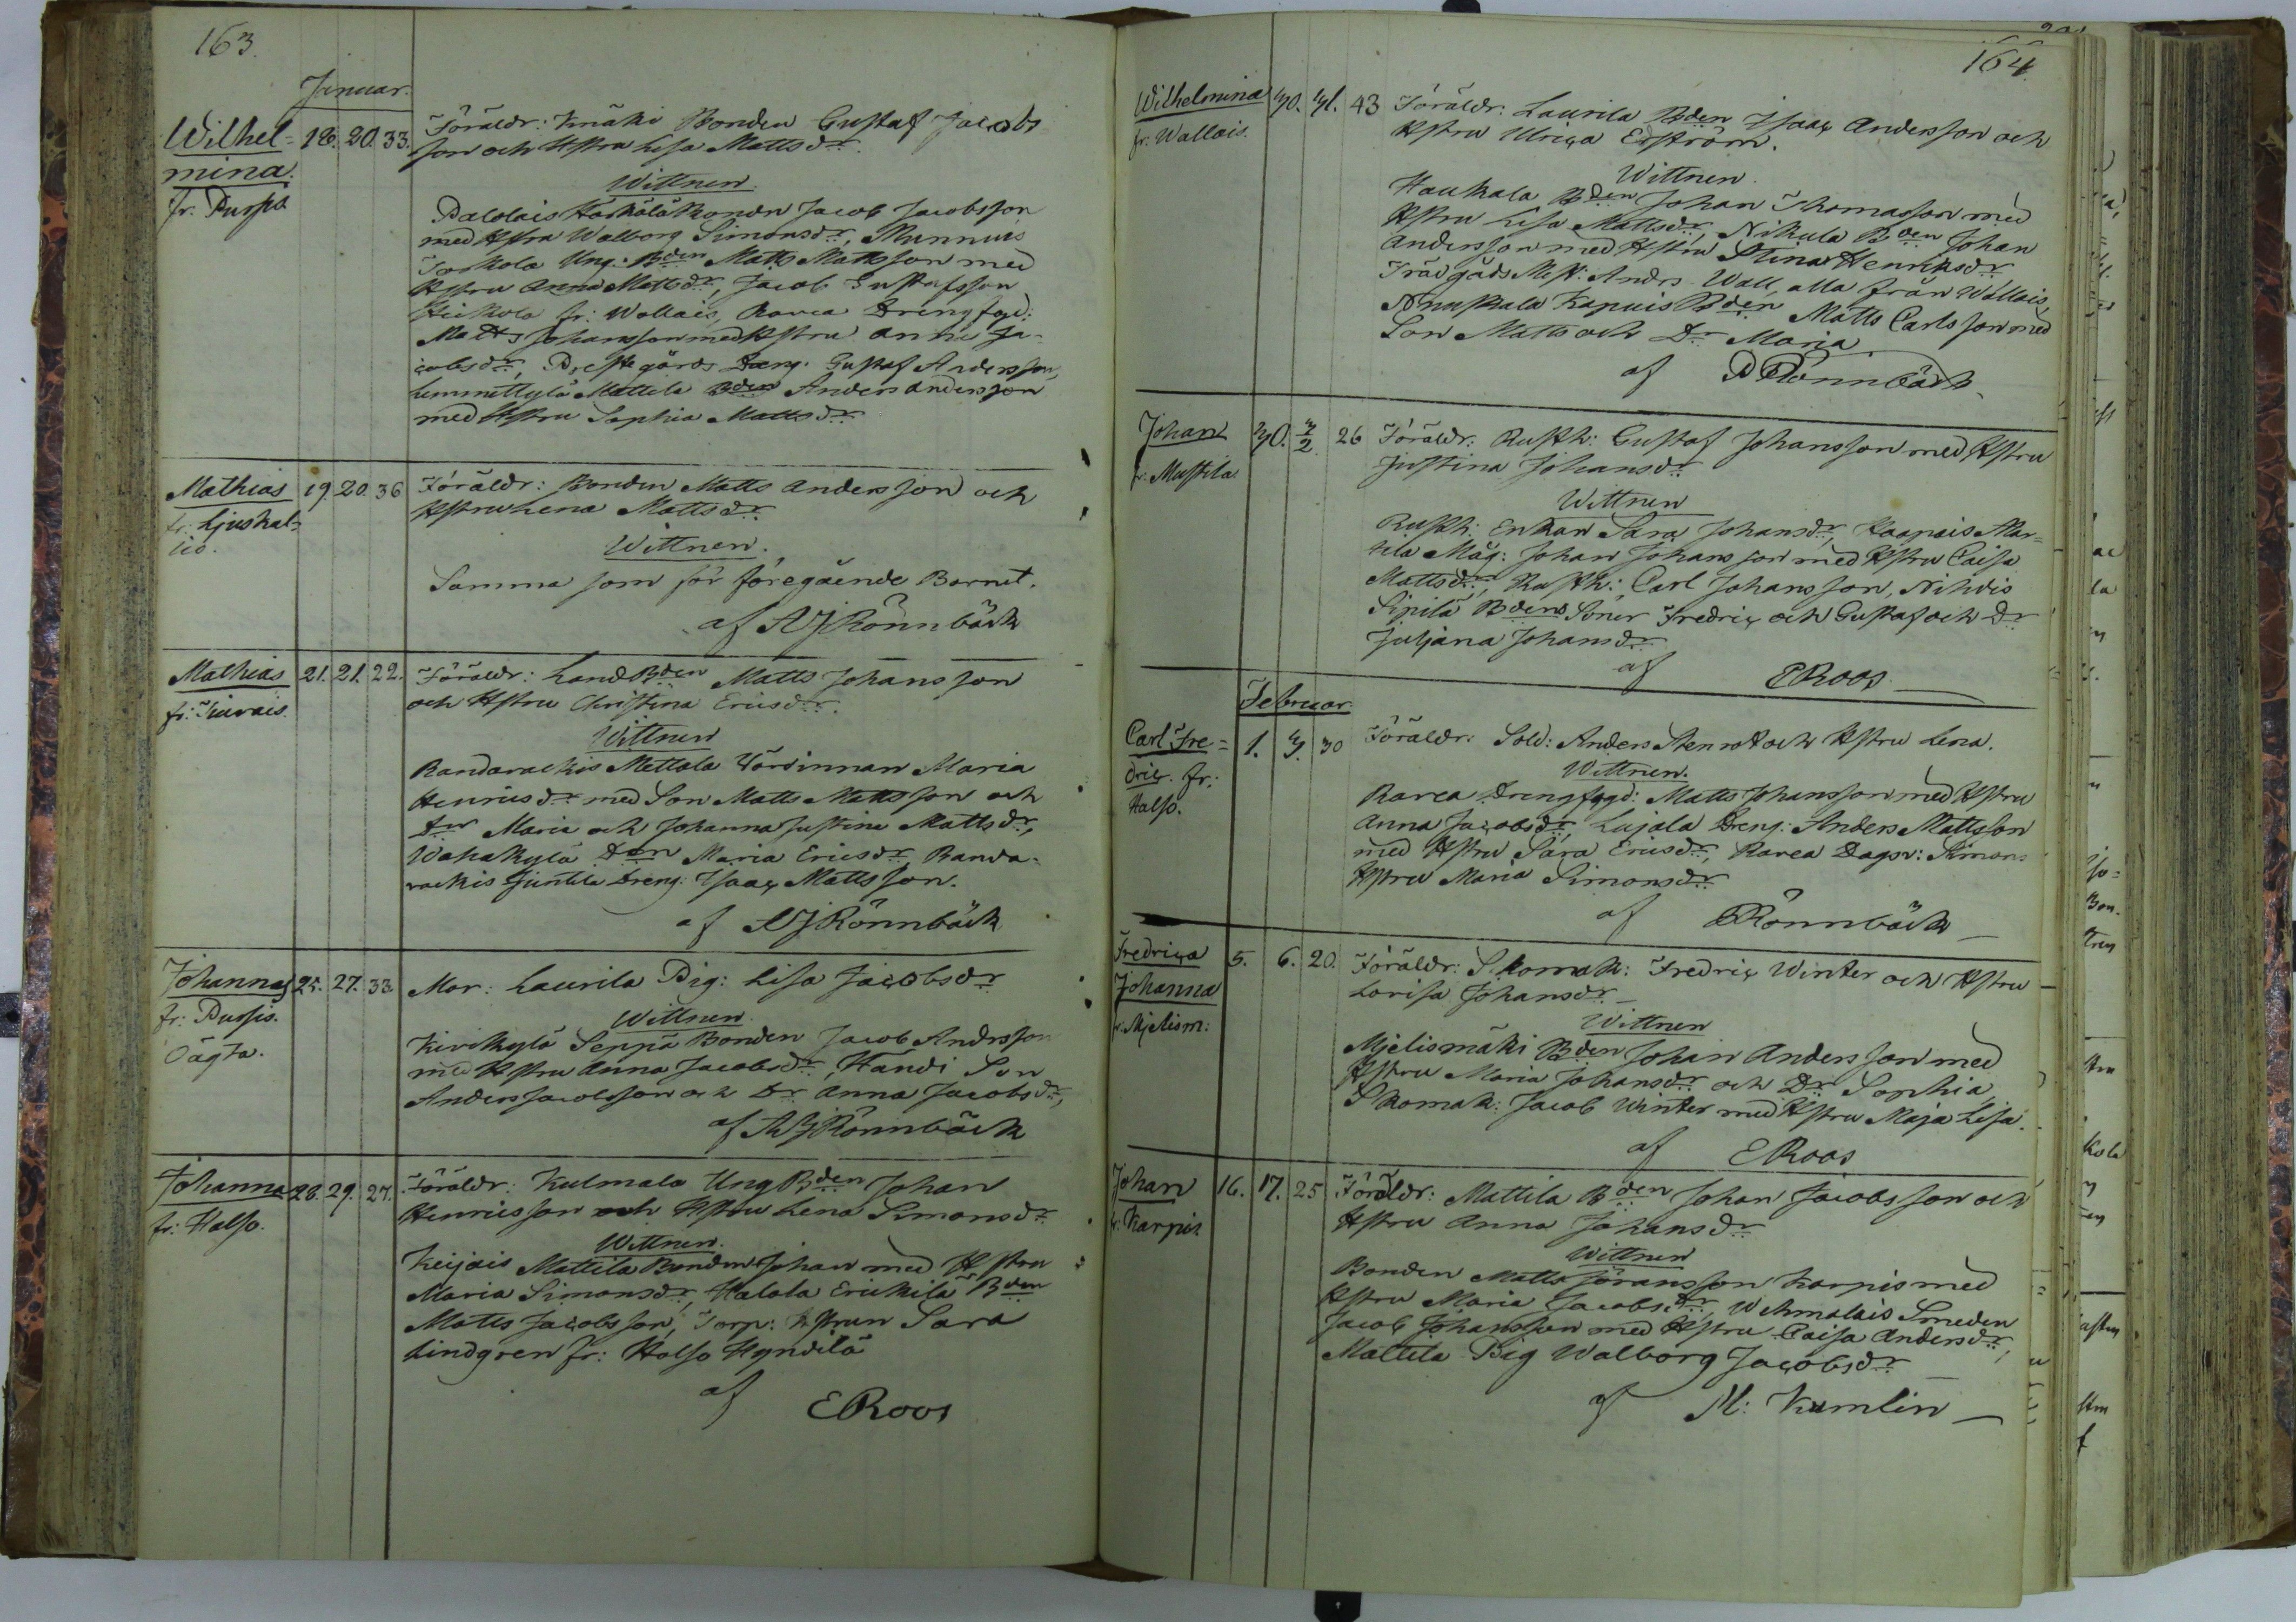 163.
Januar.
Wilhel= 18. 20. 33. Föräldr: Kmäki Bonden Gustaf Jacobs
mina. son och Hstru Lisa Mattsdr
fr. Puspo Wittnen.
Palolais Harkäläkonden Jacob Jacobsson
med Hstru Walborg Simonsdr, Munnuis
Torkola Ung. Bden Matts Mattsson med
Hstru Anna Mattsdr, Jacob Gustafsson
Heikola fr: Wallais, Rarca Drengfgd:
Matts Johansson med Hstru Anna Ja=
cobsdr, Prestegårds Dreng. Gustaf Andersson,
Lemmettylä Mattila Bden Anders Andersson
med Hstru Sophia Mattsdr
Mathias 19. 20. 36 Föräldr: Bonden Matts Andersson och
fr. Ljuskal= Hstru Lena Mattsdr
lio. Wittnen.
Samma som för föregående Barnet.
af A J Rönnbäck
Mathias 21. 21. 22. Föräldr: Land Bden Matts Johansson
fr: och Hstru Christina Ericsdr.
Wittnen
Randarackis Mettala Värdinnan Maria
Henricsdr med Son Matts Mattsson och
Dr Maria och Johanna Justina Mattsdr,
Wahakylä Dren Maria Ericsdr, Randa=
rackis Juntila Dreng. Isaac Mattsson.
af A J Rönnbäck
Johannes 25. 27. 33. Mor: Laurila Pig: Lisa Jacobsdr
fr: Puspis. Wittnen.
Oägta. Kirikylä Seppä Bonden Jacob Andersson
med Hstru Anna Jacobsdr, Handi Son
Anders Jacobsson och Dr Anna Jacobsdr,
af A J Rönnbäck
Johanna 28. 29. 27. Föräldr: Kulmala Ung Bden Johan
fr: Halso. Henricsson och Hstru Lena Simonsdr
Wittnen.
Keijais Mattila Bonden Johan med Hstru
Maria Simonsdr, Halola Erickilä Bden
Matts Jacobsson, Torp: Hstrun Sara
Lindgren fr: Halso Hyndilä
af E Roos
164.
Wilhelmina 30. 31. 43 Föräldr: Laurila Bden Isaac Andersson och
fr: Wallais. Hstru Ulrica Edström.
Wittnen.
Haukala Bden Johan Thomasson med
Hstru Lisa Mattsdr, Nikula Bden Johan
Andersson med Hstru Stina Henriksdr
Trädgåds Mst: Anders Wall, alla från Wallais,
Kapuis Bden Matts Carlsson med
Son Matts och Dr Maria
af Rönnbäck.
Johan 30. 2/2 26 Föräldr: Rusth: Gustaf Johansson med Hstru
fr. Mustila Justina Johansdr
Wittnen
Rusth: Enkan Sara Johansdr, Haapais Mar=
tila Måg: Johan Johansson med Hstru Caisa
Mattsdr, Rusth: Carl Johansson, Nihdis
Sipilä Bdens Söner Fredric och Gustaf och Dr
Juliana Johansdr
af E Roos.
Februar.
Carl Fre= 1. 3. 30 Föräldr: Sold: Anders Stenrot och Hstru Lena.
dric. fr: Wittnen.
Halso. Rarca Drengfgd: Matts Johansson med Hstru
Anna Jacobsdr, Lujala Dreng: Anders Mattsson
med Hstru Sara Ericsdr, Rarca Dagsv: Simons
Hstru Maria Simonsdr
af Rönnbäck
Fredrica 5. 6. 20. Föräldr: Skomak: Fredric Winter och Hstru
Johanna Lovisa Johansdr
fr: Mjelism: Wittnen
Mjelismäki Bden Johan Andersson med
Hstru Maria Johansdr och Dr Sophia,
Skomak: Jacob Winter med Hstru Maja Lisa.
af E Roos
Johan 16. 17. 25 Föräldr: Mattila Bden Johan Jacobsson och
fr: Karpis Hstru Anna Johansdr
Wittnen
Bonden Matts Göransson Karpis med
Hstru Maria Jacobsdr, Wehmalais Smeden
Jacob Johansson med Hstru Caisa Andersdr,
Mattila Pig Walborg Jacobsdr
af M: Kumlin